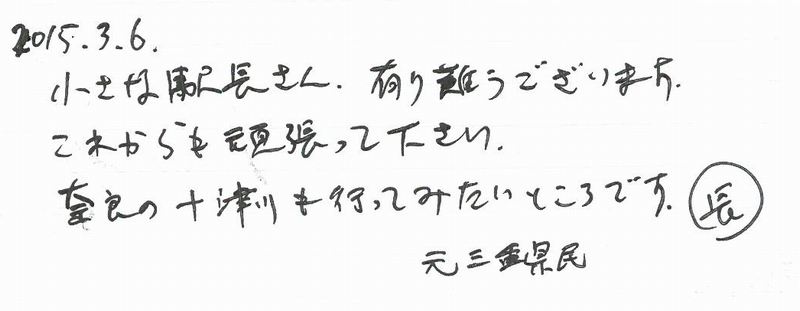 2015.3.6.
小さな駅長さん. 有り難うございます.
これからも頑張って下さい.
奈良の十津川も行ってみたいところです. 長
元三重県民